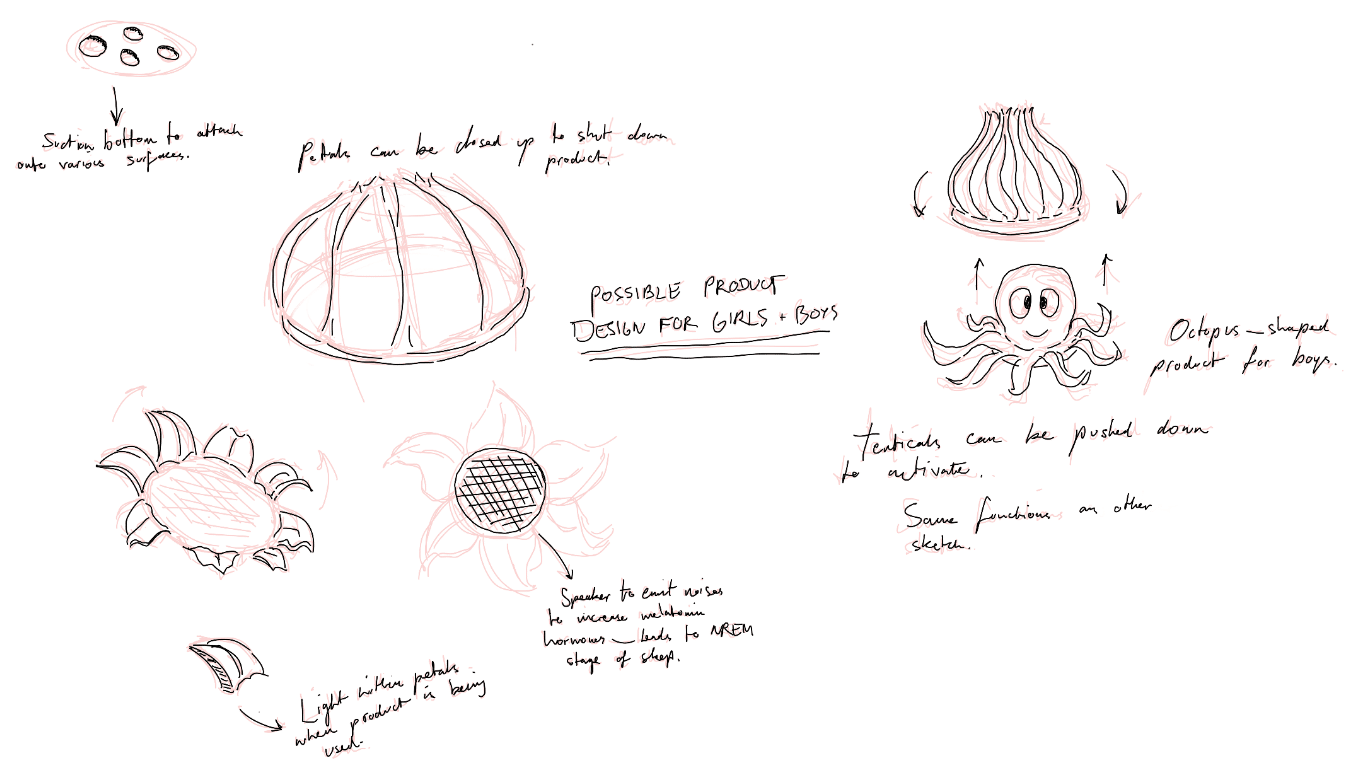 Suction bottom to attach
onto various surfaces.
Petals can be closed up to shut down
product.
POSSIBLE PRODUCT
DESIGN FOR GIRLS + BOYS
Octopus-shaped
product for boys.
Tenticals can be pushed down
to activate.
Same functions as other
sketch.
Speaker to emit noises
to increase melatonin
hormones - leads to NREM
stage of sleep.
Light within petals
when product is being
used.